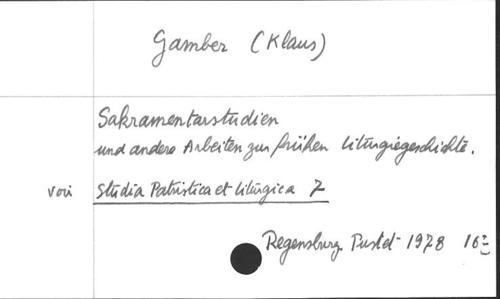 Gamber (Klaus)
Sakramentarstudien
und andere Arbeiten zur frühen Liturgiegeschichte.
voir Studia Patristica et liturgica 7
Regensburg Pustet 1978 16°